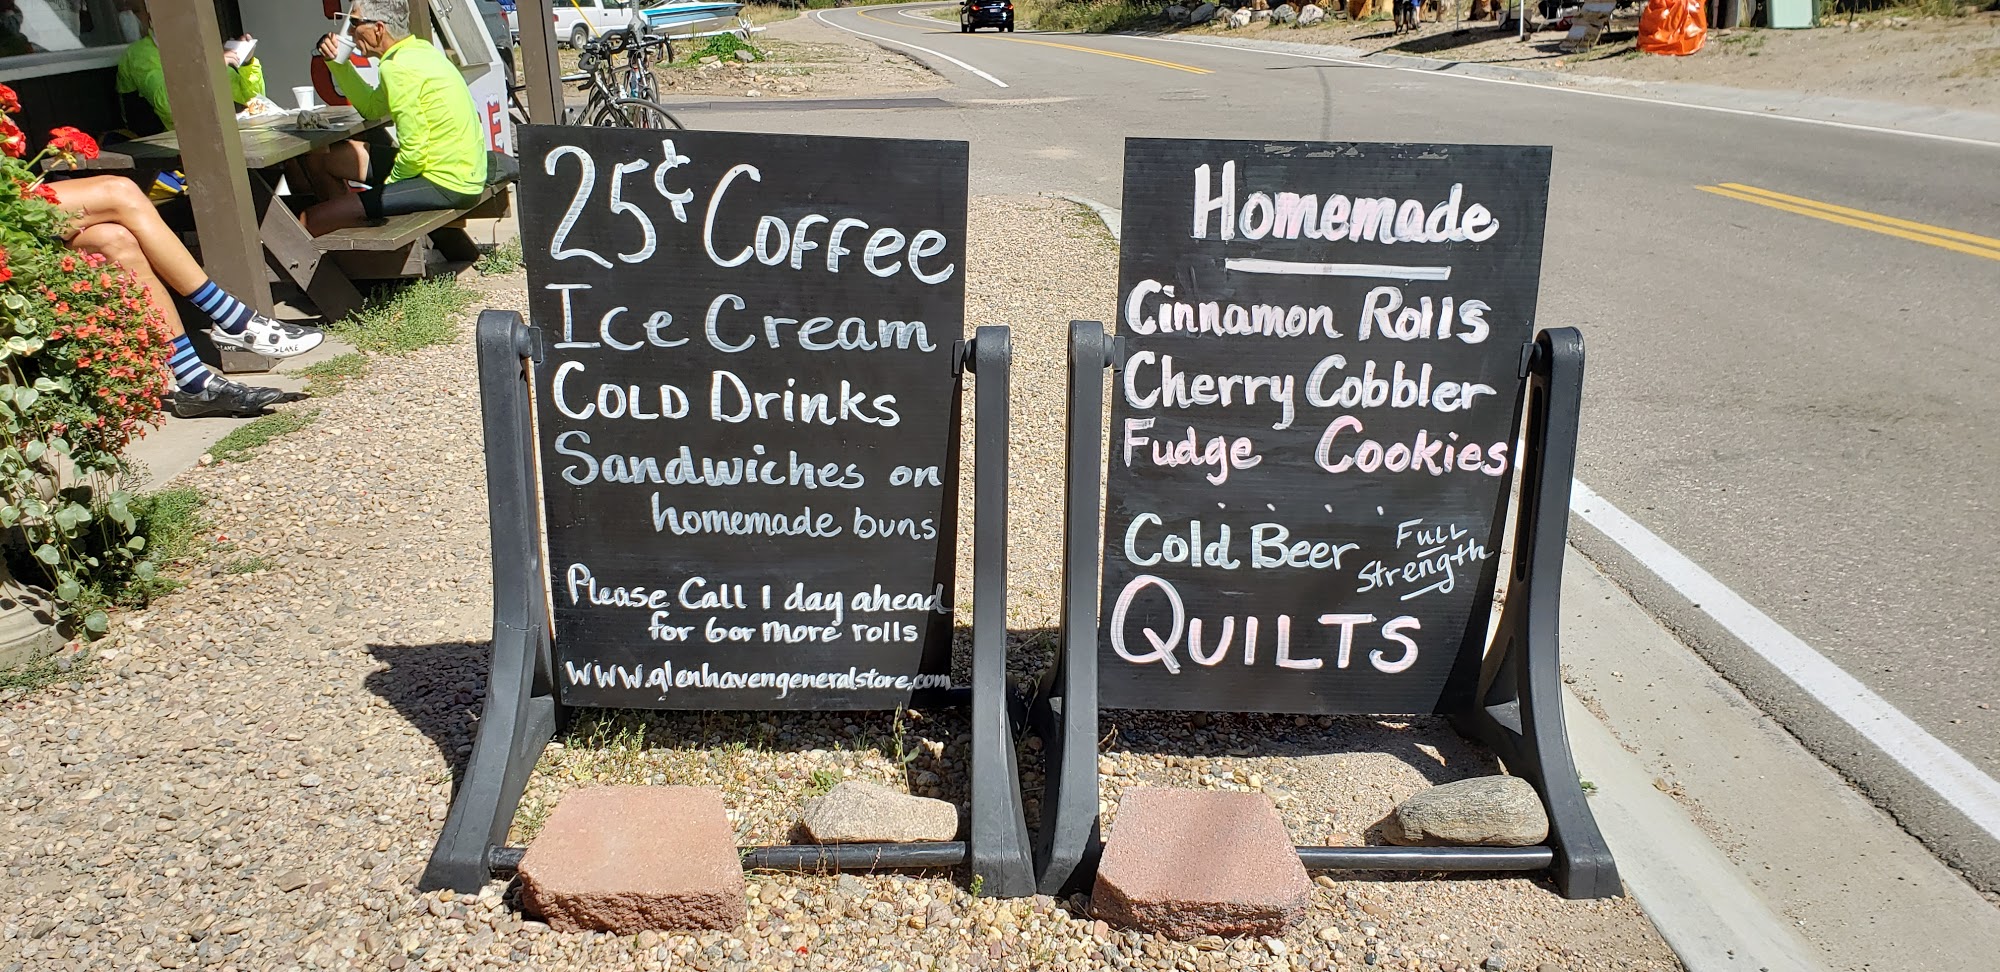 25¢ Coffee
Ice Cream
COLD Drinks
Sandwiches on
homemade buns
Please Call 1 day ahead
for 6 or more rolls
WWW.glenhavengeneralstore.com
Homemade
Cinnamon Rolls
Cherry Cobbler
Fudge Cookies
Cold Beer Full
Strength
QUILTS
LAKE
LAKE